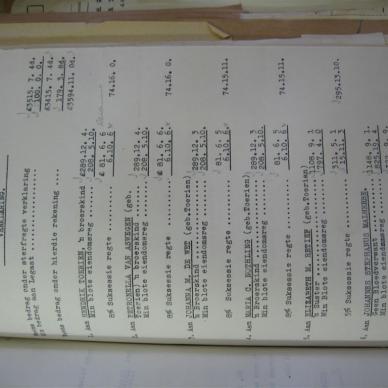 VERKLARING.
bedrag onder sterfregte verklaring £3515. 7. 4d.
bedrag aan Legaat 100. 0. 0.
£3415. 7. 4d.
bedrag onder hierdie rekening 179. 3. 8d.
£3594.11. 0d.
1. Aan HENDRIK TOERIEN 'n broerskind £289.12. 4.
Min blote eiendomsreg 208. 5.10.
£ 81. 6. 6
8% Suksessie regte 6.10. 6 74.16. 0.
2. Aan PETRONELLA VAN ASWEGEN (geb.
Toerien) 'n broerskind 289.12. 4.
Min blote eiendomsreg 208. 5.10.
£ 81. 6. 6.
8% Suksessie regte 6.10. 6. 74.16. 0.
3. Aan JOHANNA M. DE WET (geb.Toerien)
'n Broerskind 289.12. 3
Min blote eiendomsreg 208. 5.10.
81. 6. 5
8% Suksessie regte 6.10. 6. 74.15.11.
4. Aan MARIA C. BUCHLING (geb.Toerien)
'n Broerskind 289.12. 3
Min blote eiendomsreg 208. 5.10.
81. 6. 5
8% Suksessie regte 6.10. 6 74.15.11.
5. Aan ELIZABETH M. RETIEF (geb.Toerien)
'n Suster 1108. 9. 1
Min blote eiendomsreg 797. 4. 0
311. 5. 1
5% Suksessie regte 15.11. 3 295.13.10.
6. Aan JOHANNES STEPHANUS MALHERBE,
Geen Bloedverwant 1148. 9. 1.
Min blote eiendomsreg